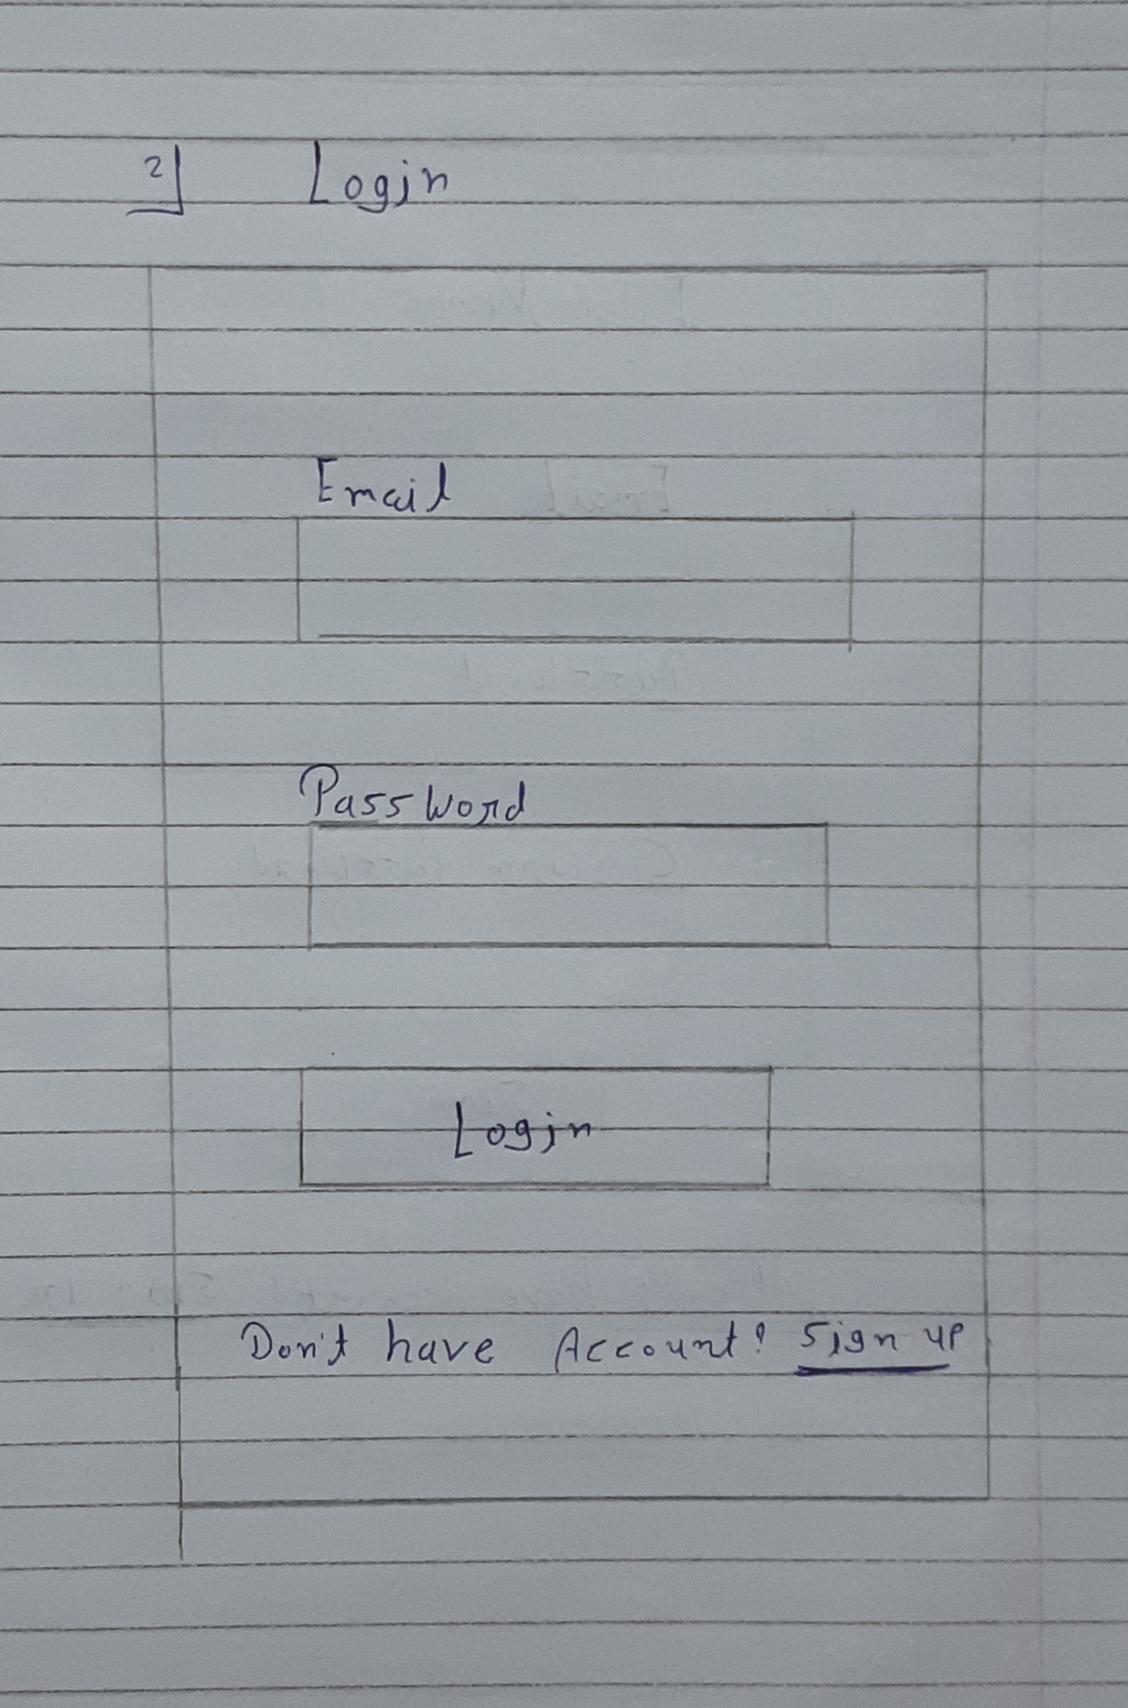 2] Login
Email
PassWord
Login
Don't have Account? Sign up